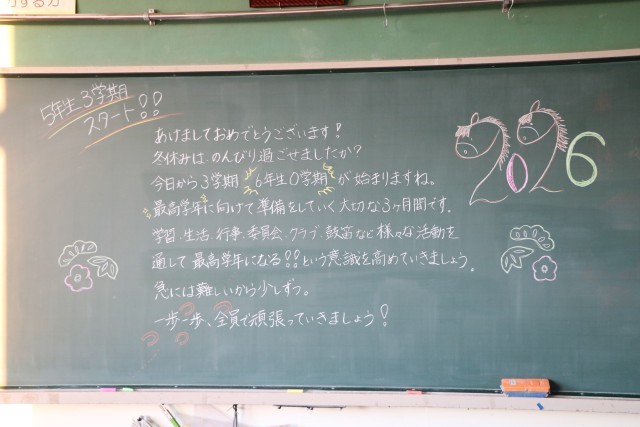 5年生3学期
スタート!!
2026
あけましておめでとうございます!
冬休みは、のんびり過ごせましたか?
今日から3学期 6年生0学期 が始まりますね。
最高学年に向けて準備をしていく大切な3ヶ月間です。
学習、生活、行事、委員会、クラブ、鼓笛など様々な活動を
通して最高学年になる!!という意識を高めていきましょう。
急には難しいから少しずつ。
一歩一歩、全員で頑張っていきましょう!